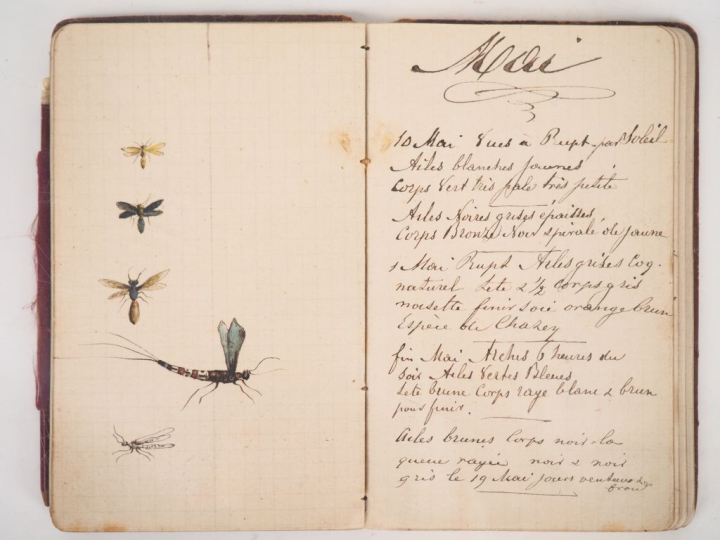 Mai
10 Mai Vues à Rupt par Soleil
Ailes blanches Jaunes
Corps Vert très pale très petite
Ailes Noires grises épaisses
Corps Bronze Noir spirale de Jaune
Mai Rupt Ailes grises Coq.
naturel Tete 2 ½ corps gris
noisette finir soie orange brun
Espèce de Chazey
fin Mai Arches 6 heures du
Soir Ailes Vertes Bleues
Tete brune Corps raye blanc & brun
pour finir.
Ailes brunes Corps noir la
queue rayée noir & noir
gris le 19 Mai Jours